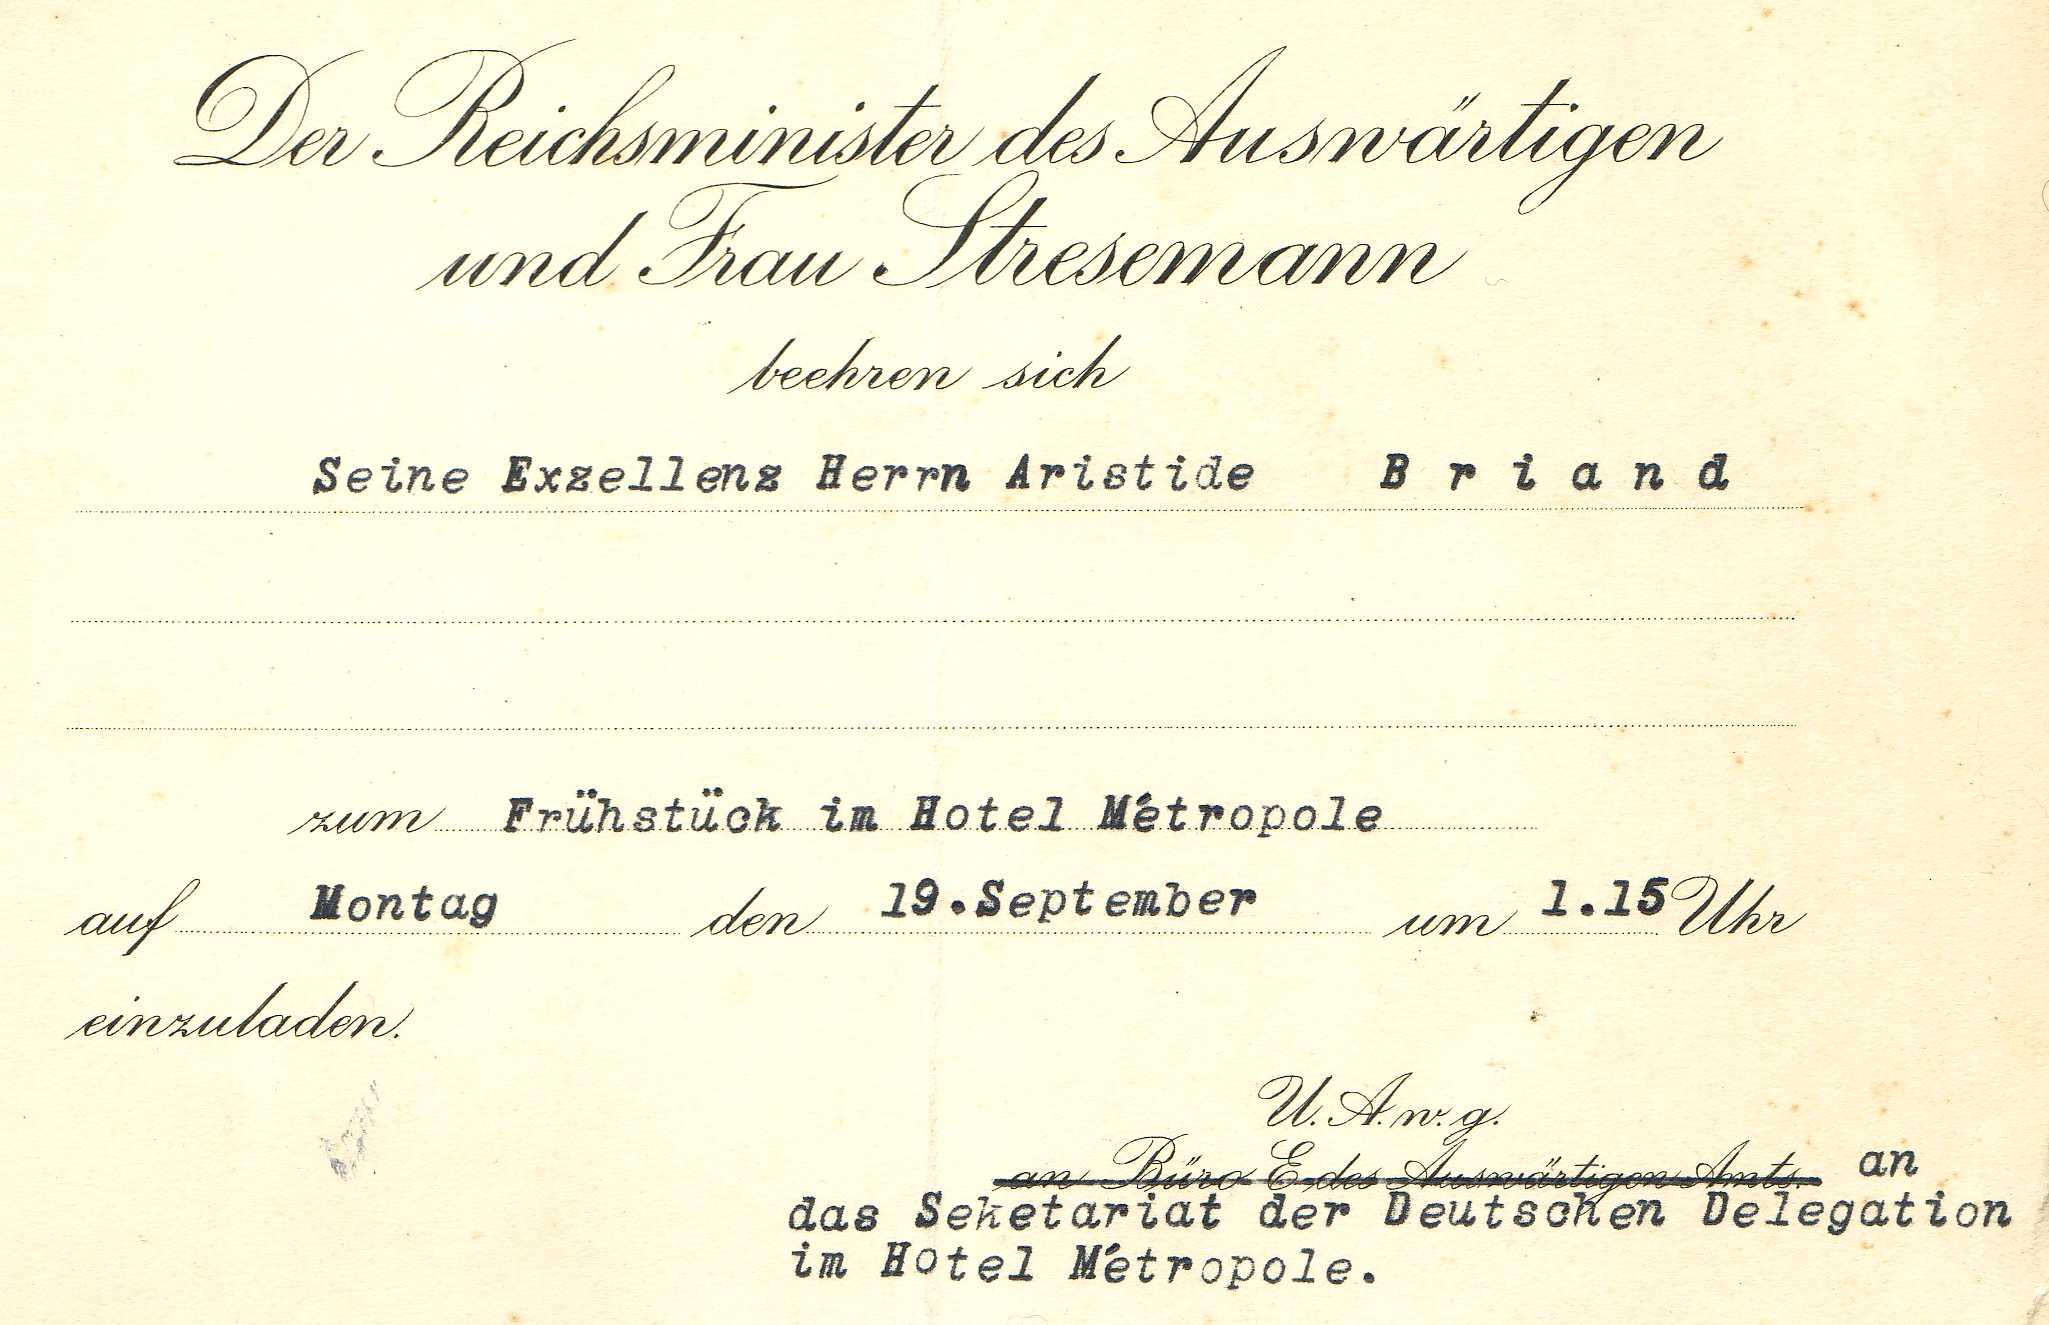 Der Reichsminister des Auswärtigen
und Frau Stresemann
beehren sich
Seine Exzellenz Herrn Aristide B r i a n d
zum Frühstück im Hotel Métropole
auf Montag den 19.September um 1.15 Uhr
einzuladen.
U. A. w. g.
an Büro E des Auswärtigen Amts. an
das Seketariat der Deutschen Delegation
im Hotel Métropole.